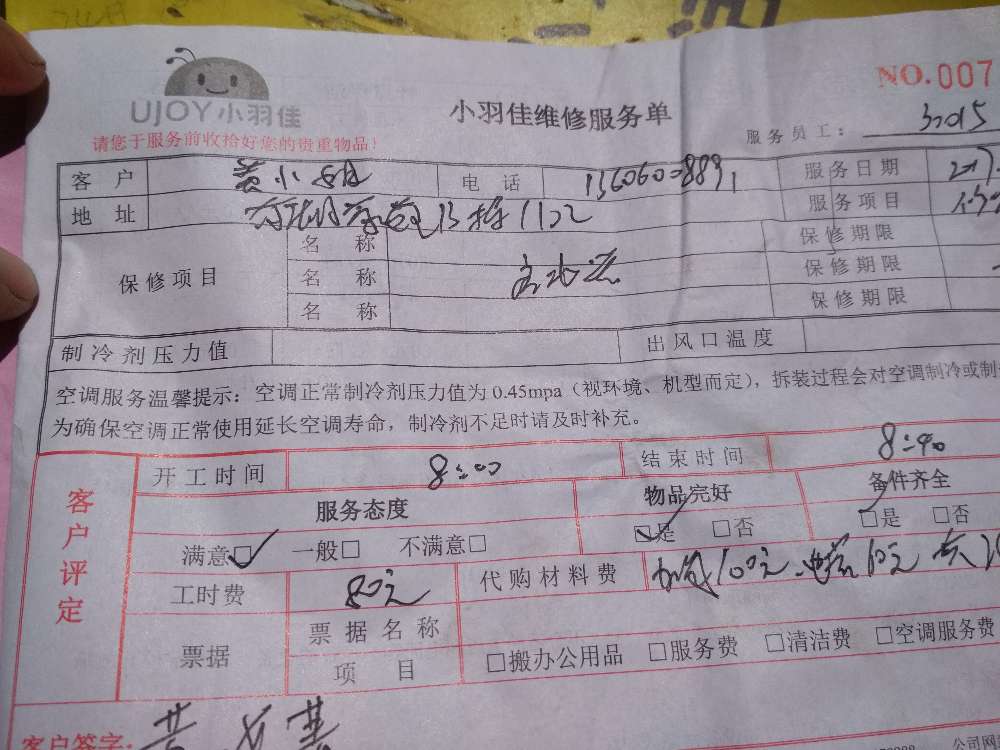 NO.007
UJOY小羽佳
小羽佳维修服务单
请您于服务前收拾好您的贵重物品!
服务员工:
客户 黄小姐 电话 服务日期 2017.
地址 13栋1102 服务项目
名称 保修期限
保修项目 名称 保修期限
名称 保修期限
制冷剂压力值 出风口温度
空调服务温馨提示:空调正常制冷剂压力值为0.45mpa(视环境、机型而定),拆装过程会对空调制冷或制
为确保空调正常使用延长空调寿命,制冷剂不足时请及时补充。
客户评定
开工时间 8:00 结束时间 8:40
服务态度 物品完好 备件齐全
满意□ 一般□ 不满意□ □是 □否 □是 □否
工时费 80元 代购材料费 100元
票据 票据名称
项目 □搬办公用品 □服务费 □清洁费 □空调服务费
客户签字:
公司网